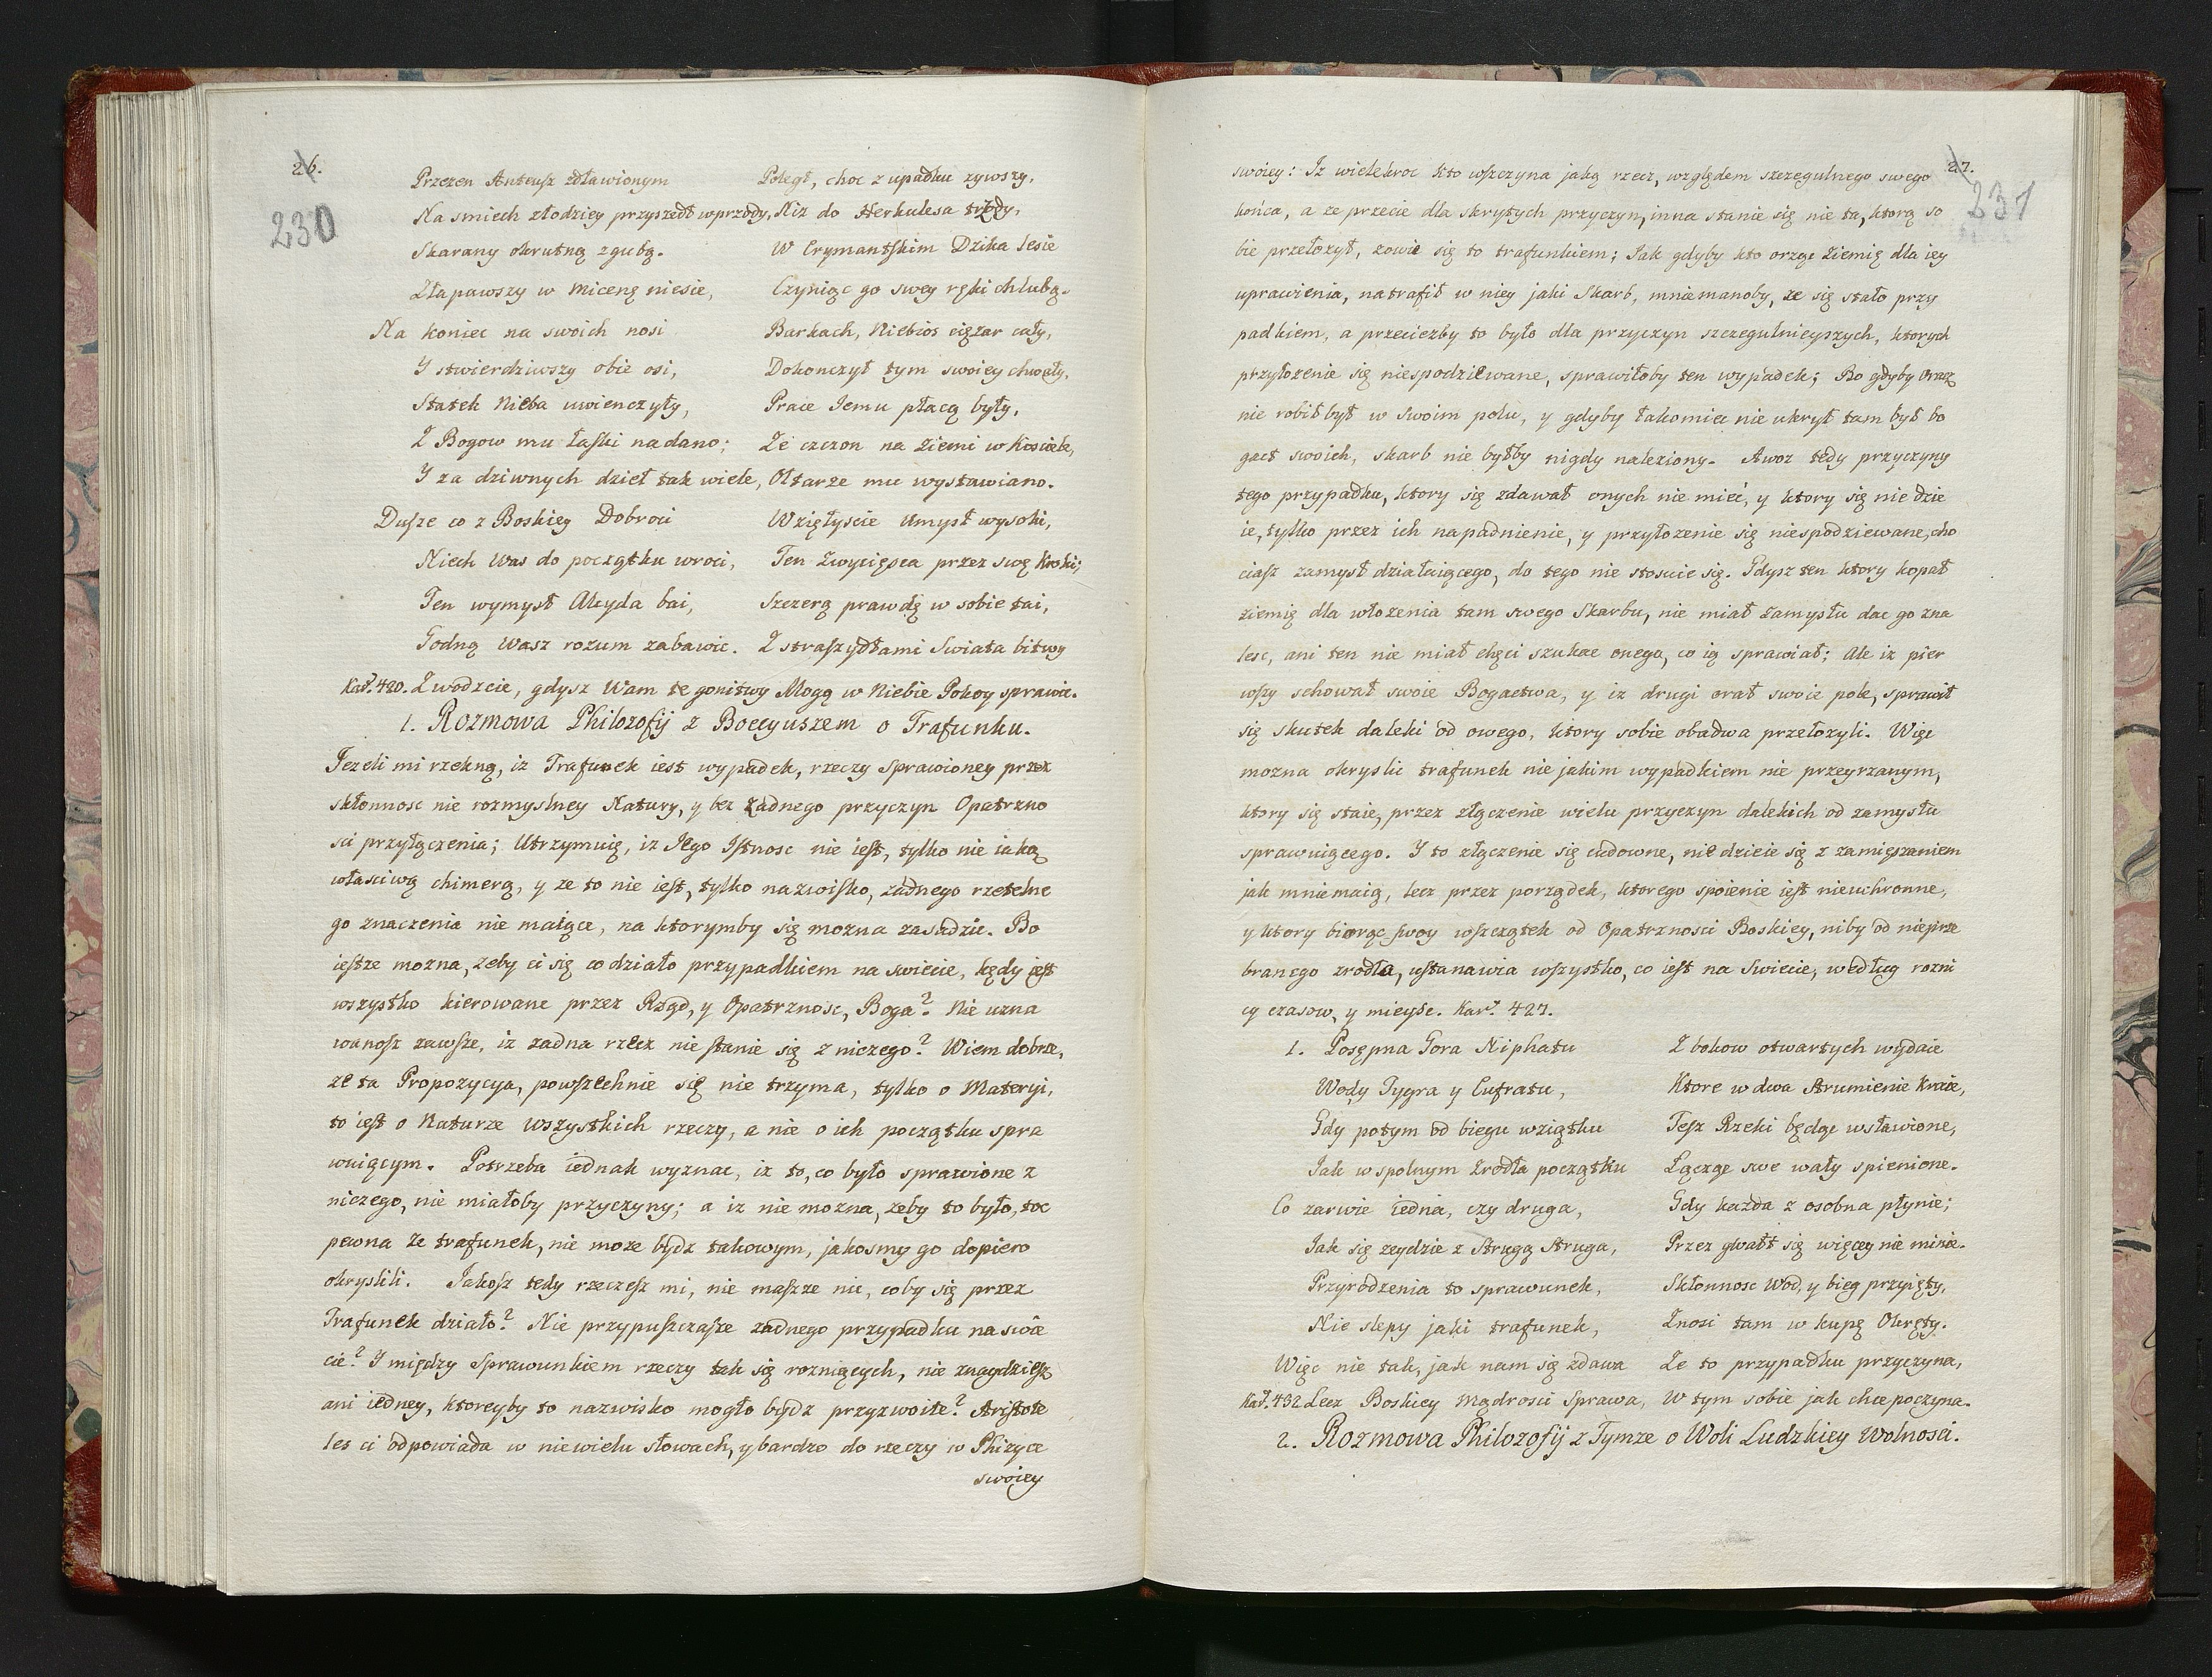 26.
230
Przezen Anteusz zdławionym Poległ, choc z upadku zywszy,
Na smiech złodziey przyszedł wprzody, Niz do Herkulesa trzody,
Skarany okrutną zgubą. W Erymantskim Dzika lesie
Złapawszy w Micenę niesie, Czyniąc go swey ręki chlubą.
Na koniec na swoich nosi Barkach, Niebios ciężar cały,
Y stwierdziwszy obie osi, Dokonczył tym swoiey chwały,
Statek Nieba uwienczyły, Prace Jemu płacą były,
Z Bogow mu łaski nadano; Ze czczon na Ziemi w Kosciele,
Y za dziwnych dzieł tak wiele, Ołtarze mu wystawiano.
Dusze co z Boskiey Dobroci Wzięłyscie Umysł wysoki,
Niech Was do początku wroci, Ten Zwycięsca przez swą Kroki;
Ten wymysł Alcyda bai, Szczerą prawdę w sobie tai,
Godną Wasz rozum zabawic. Z straszydłami Swiata bitwy
Kar. 420. Zwodzcie, gdysz Wam te gonitwy Mogą w Niebie Pokoy sprawic.
1. Rozmowa Philozofij z Boecyuszem o Trafunku.
Jezeli mi rzekną, iz Trafunek iest wypadek, rzeczy sprawioney przez
skłonnosc nie rozmyslney Natury, y bez zadnego przyczyn Opatrzno
sci przyłączenia; Utrzymuię, iz Jego Istnosc nie iest, tylko nie iaką
własciwą chimerą, y ze to nie iest, tylko nazwisko, zadnego rzetelne
go znaczenia nie maiące, na ktorymby się mozna zasadzic. Bo
iestze mozna, zeby ci się co działo przypadkiem na swiecie, kędy jest
wszystko kierowane przez Rząd, y Opatrznosc, Boga? Nie uzna
wanosz zawsze, iz zadna rzecz nie stanie się z niczego? Wiem dobrze,
ze ta Propozycya, powszechnie się nie trzyma, tylko o Materyi,
to iest o Naturze wszystkich rzeczy, a nie o ich początku spra
wuiącym. Potrzeba iednak wyznac, iz to, co było sprawione z
niczego, nie miałoby przyczyny; a iz nie mozna, zeby to było, toc
pewna ze trafunek, nie moze bydz takowym, jakosmy go dopiero
okryslili. Jakosz tedy rzeczesz mi, nie maszze nic, coby się przez
Trafunek działo? Nie przypuszczasze zadnego przypadku na swie
cie? Y między Sprawunkiem rzeczy tak się roznięcych, nie znaydziesz
ani iedney, ktoreyby to nazwisko mogło bydz przyzwoite? Aristote
les ci odpowiada w niewielu słowach, y bardzo do rzeczy w Phizyce
swoiey
27.
231
swoiey: Iz wielekroc kto wszczyna jaką rzecz, względem szczegulnego swego
końca, a ze przecie dla skrytych przyczyn, inna stanie się nie ta, ktorą so
bie przełozył, zowie się to trafunkiem; Jak gdyby kto orząc ziemię dla iey
uprawienia, natrafił w niey jaki Skarb, mniemanoby, ze się stało przy
padkiem, a przeciezby to było dla przyczyn szczegulnieyszych, ktorych
przyłozenie się niespodziewane, sprawiłoby ten wypadek; Bo gdyby oracz
nie robił był w swoim polu, y gdyby łakomiec nie ukrył tam był bo
gact swoich, skarb nie byłby nigdy naleziony. Awoz tedy przyczyny
tego przypadku, ktory się zdawał onych nie mieć, y ktory się nie dzie
ie, tylko przez ich napadnienie, y przyłozenie się niespodziewane, cho
ciasz zamysł działaiącego, do tego nie stosuie się. Gdysz ten ktory kopał
ziemię dla włozenia tam swego Skarbu, nie miał Zamysłu dac go zna
lesc, ani ten nie miał chęci szukac onego, co ią sprawiał; Ale iz pier
wszy schował swoie Bogactwa, y iz drugi orał swoie pole, sprawił
się skutek daleki od owego, ktory sobie obadwa przełozyli. Więc
mozna okryslic trafunek nie jakim wypadkiem nie przeyrzanym,
ktory się staie, przez złączenie wielu przyczyn dalekich od zamysłu
sprawuiącego. Y to złączenie się cudowne, nie dzieie się z zamięszaniem
jak mniemaią, lecz przez porządek, ktorego spoienie iest nieuchronne,
y ktory biorąc swoy wszczątek od Opatrznosci Boskiey, niby od nieprze
branego zrodła, ustanawia wszystko, co iest na Swiecie, według rozni
cy czasow, y mieysc. Kar. 427.
1. Posępna Gora Niphatu Z bokow otwartych wydaie
Wody Tygra y Eufratu, Ktore w dwa Strumienie Kraie,
Gdy potym od biegu wziątku Tesz Rzeki będąc wsławione,
Jak wspolnym Zrodła początku Łączą swe wały spienione.
Co zarwie iedna, czy druga, Gdy kazda z osobna płynie;
Jak się zeydzie z Strugą Struga, Przez gwałt się więcey nie minie.
Przyrodzenia to sprawunek, Skłonnosc Wod, y bieg przyięty,
Nie slepy jaki trafunek, Znosi tam w kupę Okręty.
Więc nie tak, jak nam się zdawa Ze to przypadku przyczyna,
Kar. 432 Lecz Boskiey Mądrosci Sprawa, W tym sobie jak chce poczyna.
2. Rozmowa Philozofij z Tymze o Woli Ludzkiey Wolnosci.